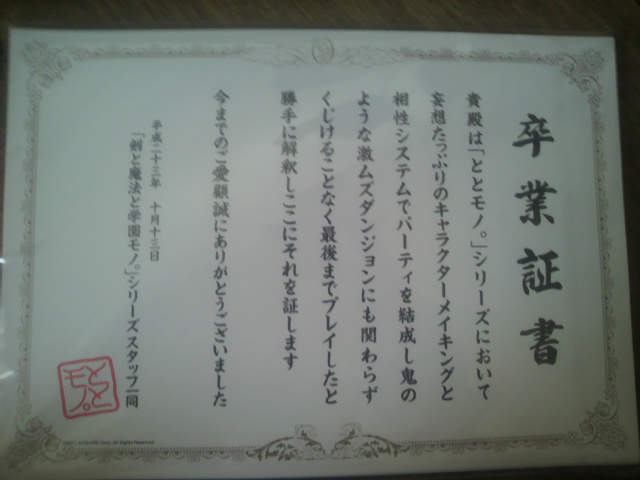 卒業証書
貴殿は「ととモノ。」シリーズにおいて
妄想たっぷりのキャラクターメイキングと
相性システムでパーティを結成し鬼の
ような激ムズダンジョンにも関わらず
くじけることなく最後までプレイしたと
勝手に解釈しここにそれを証します
今までのご愛顧誠にありがとうございました
平成二十三年 十月十三日
「剣と魔法と学園モノ。」シリーズスタッフ一同
ととモノ。
©2011 ACQUIRE Corp. All Rights Reserved.